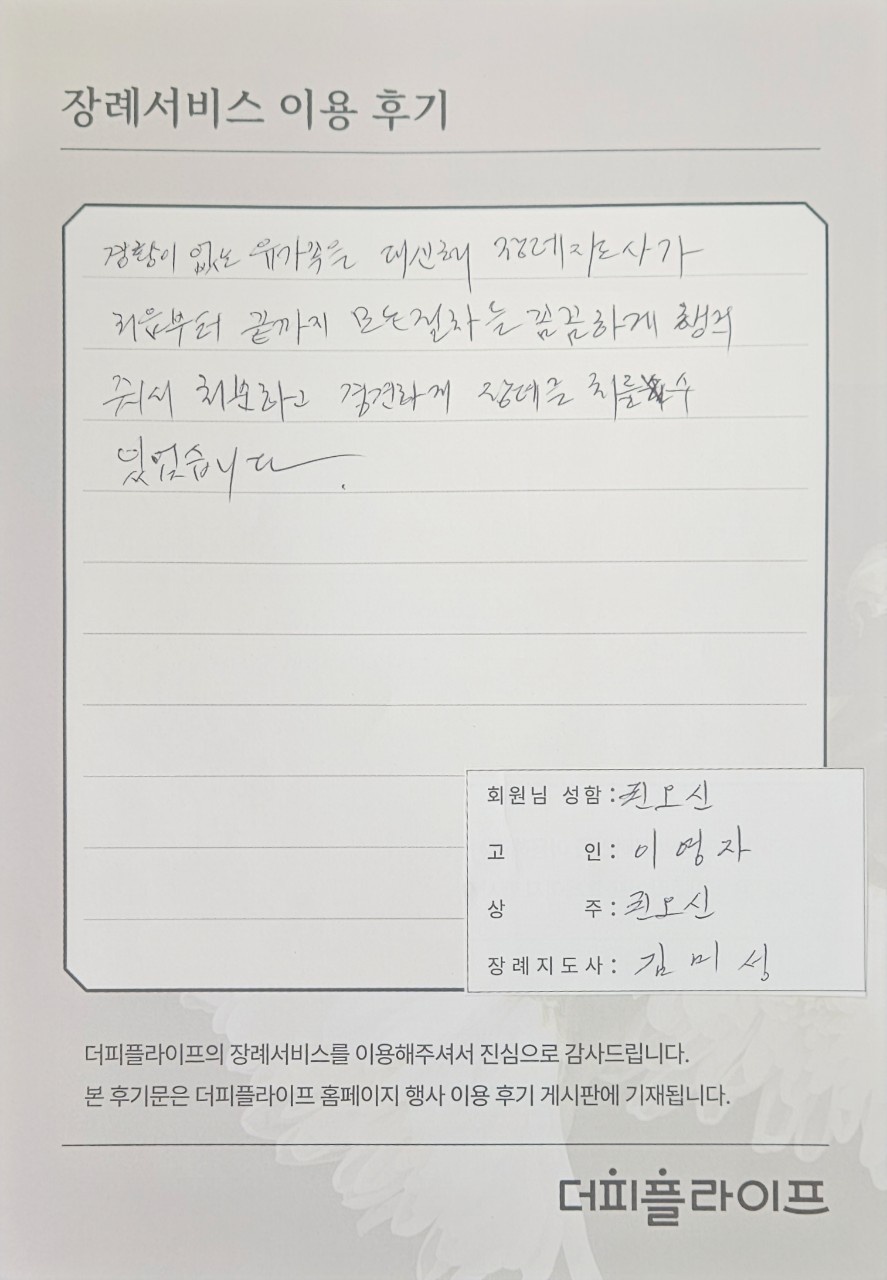 장례서비스 이용 후기
경황이 없는 유가족을 대신해 장례지도사가
처음부터 끝까지 모든절차를 꼼꼼하게 챙겨
줘서 차분하고 경건하게 장례를 치를 수
있었습니다.
회원님 성함:
고 인: 이영자
상 주:
장례지도사: 김미성
더피플라이프의 장례서비스를 이용해주셔서 진심으로 감사드립니다.
본 후기문은 더피플라이프 홈페이지 행사 이용 후기 게시판에 기재됩니다.
더피플라이프